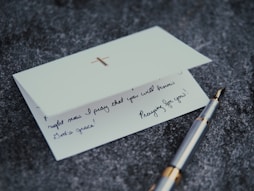 right now I pray that you will know
God's grace!
Praying for you!